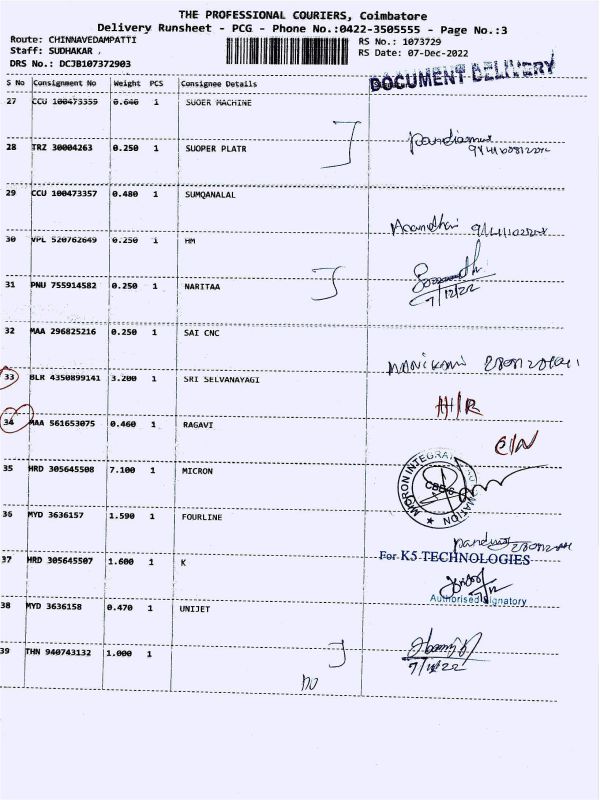 THE PROFESSIONAL COURIERS, Coimbatore
Delivery Runsheet - PCG - Phone No.:0422-3505555 - Page No.:3
Route: CHINNAVEDAMPATTI
RS No.: 1073729
Staff: SUDHAKAR .
RS Date: 07-Dec-2022
DRS No.: DCJB107372903
DOCUMENT DELIVERY
S No Consignment No Weight PCS Consignee Details
27 CCU 100473359 0.640 1 SUOER MACHINE
28 TRZ 30004263 0.250 1 SUOPER PLATR
29 CCU 100473357 0.480 1 SUMQANALAL
30 VPL 520762649 0.250 1 HM
31 PNU 755914582 0.250 1 NARITAA
7/12/22
32 MAA 296825216 0.250 1 SAI CNC
33 BLR 4350899141 3.200 1 SRI SELVANAYAGI
34 MAA 561653075 0.460 1 RAGAVI
35 HRD 305645508 7.100 1 MICRON
36 MYD 3636157 1.590 1 FOURLINE
37 HRD 305645507 1.600 1 K
For K5 TECHNOLOGIES
Authorised Signatory
38 MYD 3636158 0.470 1 UNIJET
39 THN 940743132 1.000 1
7/12/22